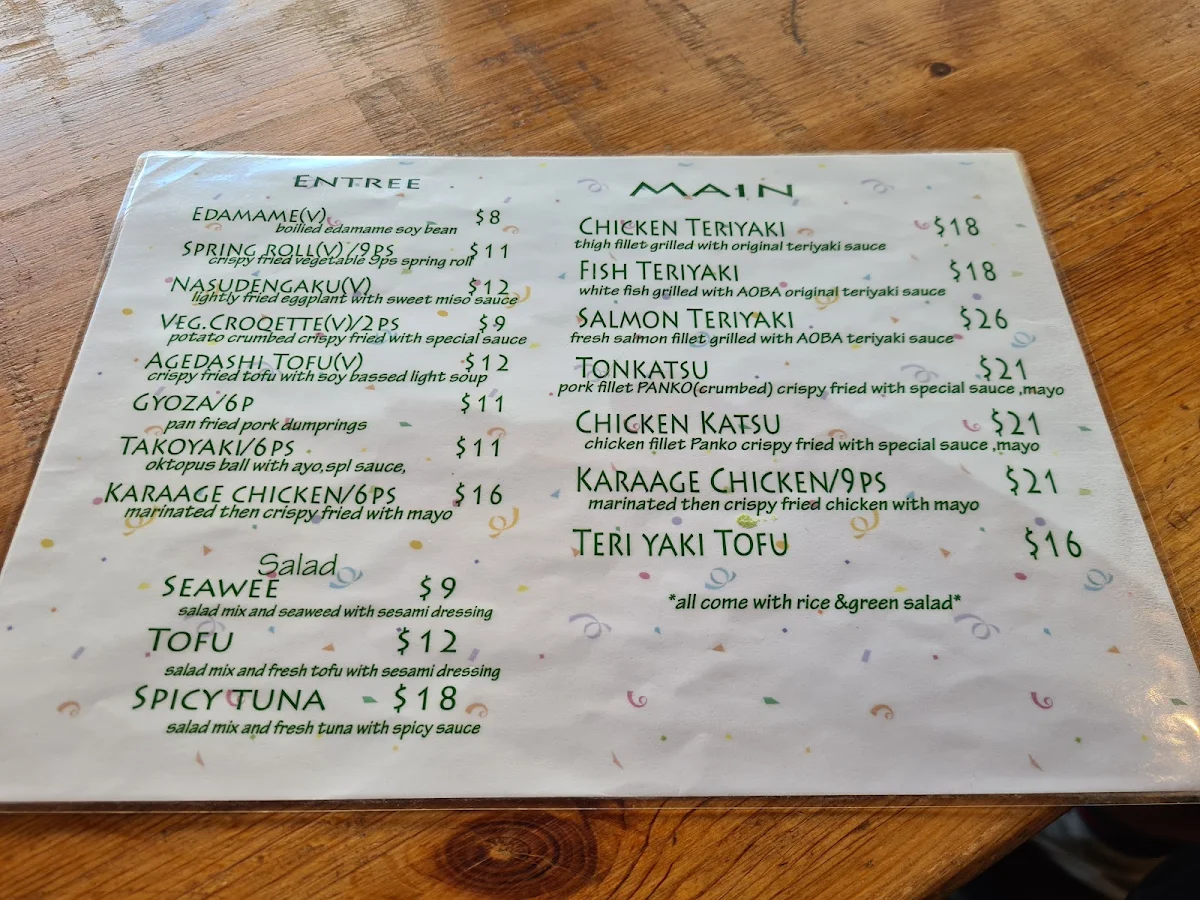 ENTREE
EDAMAME(V) $8
boilied edamame soy bean
SPRING ROLL(V)/9PS $11
crispy fried vegetable 9ps spring roll
NASUDENGAKU(V) $12
lightly fried eggplant with sweet miso sauce
VEG.CROQETTE(V)/2PS $9
potato crumbed crispy fried with special sauce
AGEDASHI TOFU(V) $12
crispy fried tofu with soy bassed light soup
GYOZA/6P $11
pan fried pork dumprings
TAKOYAKI/6PS $11
oktopus ball with ayo,spl sauce,
KARAAGE CHICKEN/6PS $16
marinated then crispy fried with mayo
Salad
SEAWEE $9
salad mix and seaweed with sesami dressing
TOFU $12
salad mix and fresh tofu with sesami dressing
SPICY TUNA $18
salad mix and fresh tuna with spicy sauce
MAIN
CHICKEN TERIYAKI $18
thigh fillet grilled with original teriyaki sauce
FISH TERIYAKI $18
white fish grilled with AOBA original teriyaki sauce
SALMON TERIYAKI $26
fresh salmon fillet grilled with AOBA teriyaki sauce
TONKATSU $21
pork fillet PANKO(crumbed) crispy fried with special sauce ,mayo
CHICKEN KATSU $21
chicken fillet Panko crispy fried with special sauce ,mayo
KARAAGE CHICKEN/9PS $21
marinated then crispy fried chicken with mayo
TERI YAKI TOFU $16
*all come with rice &green salad*